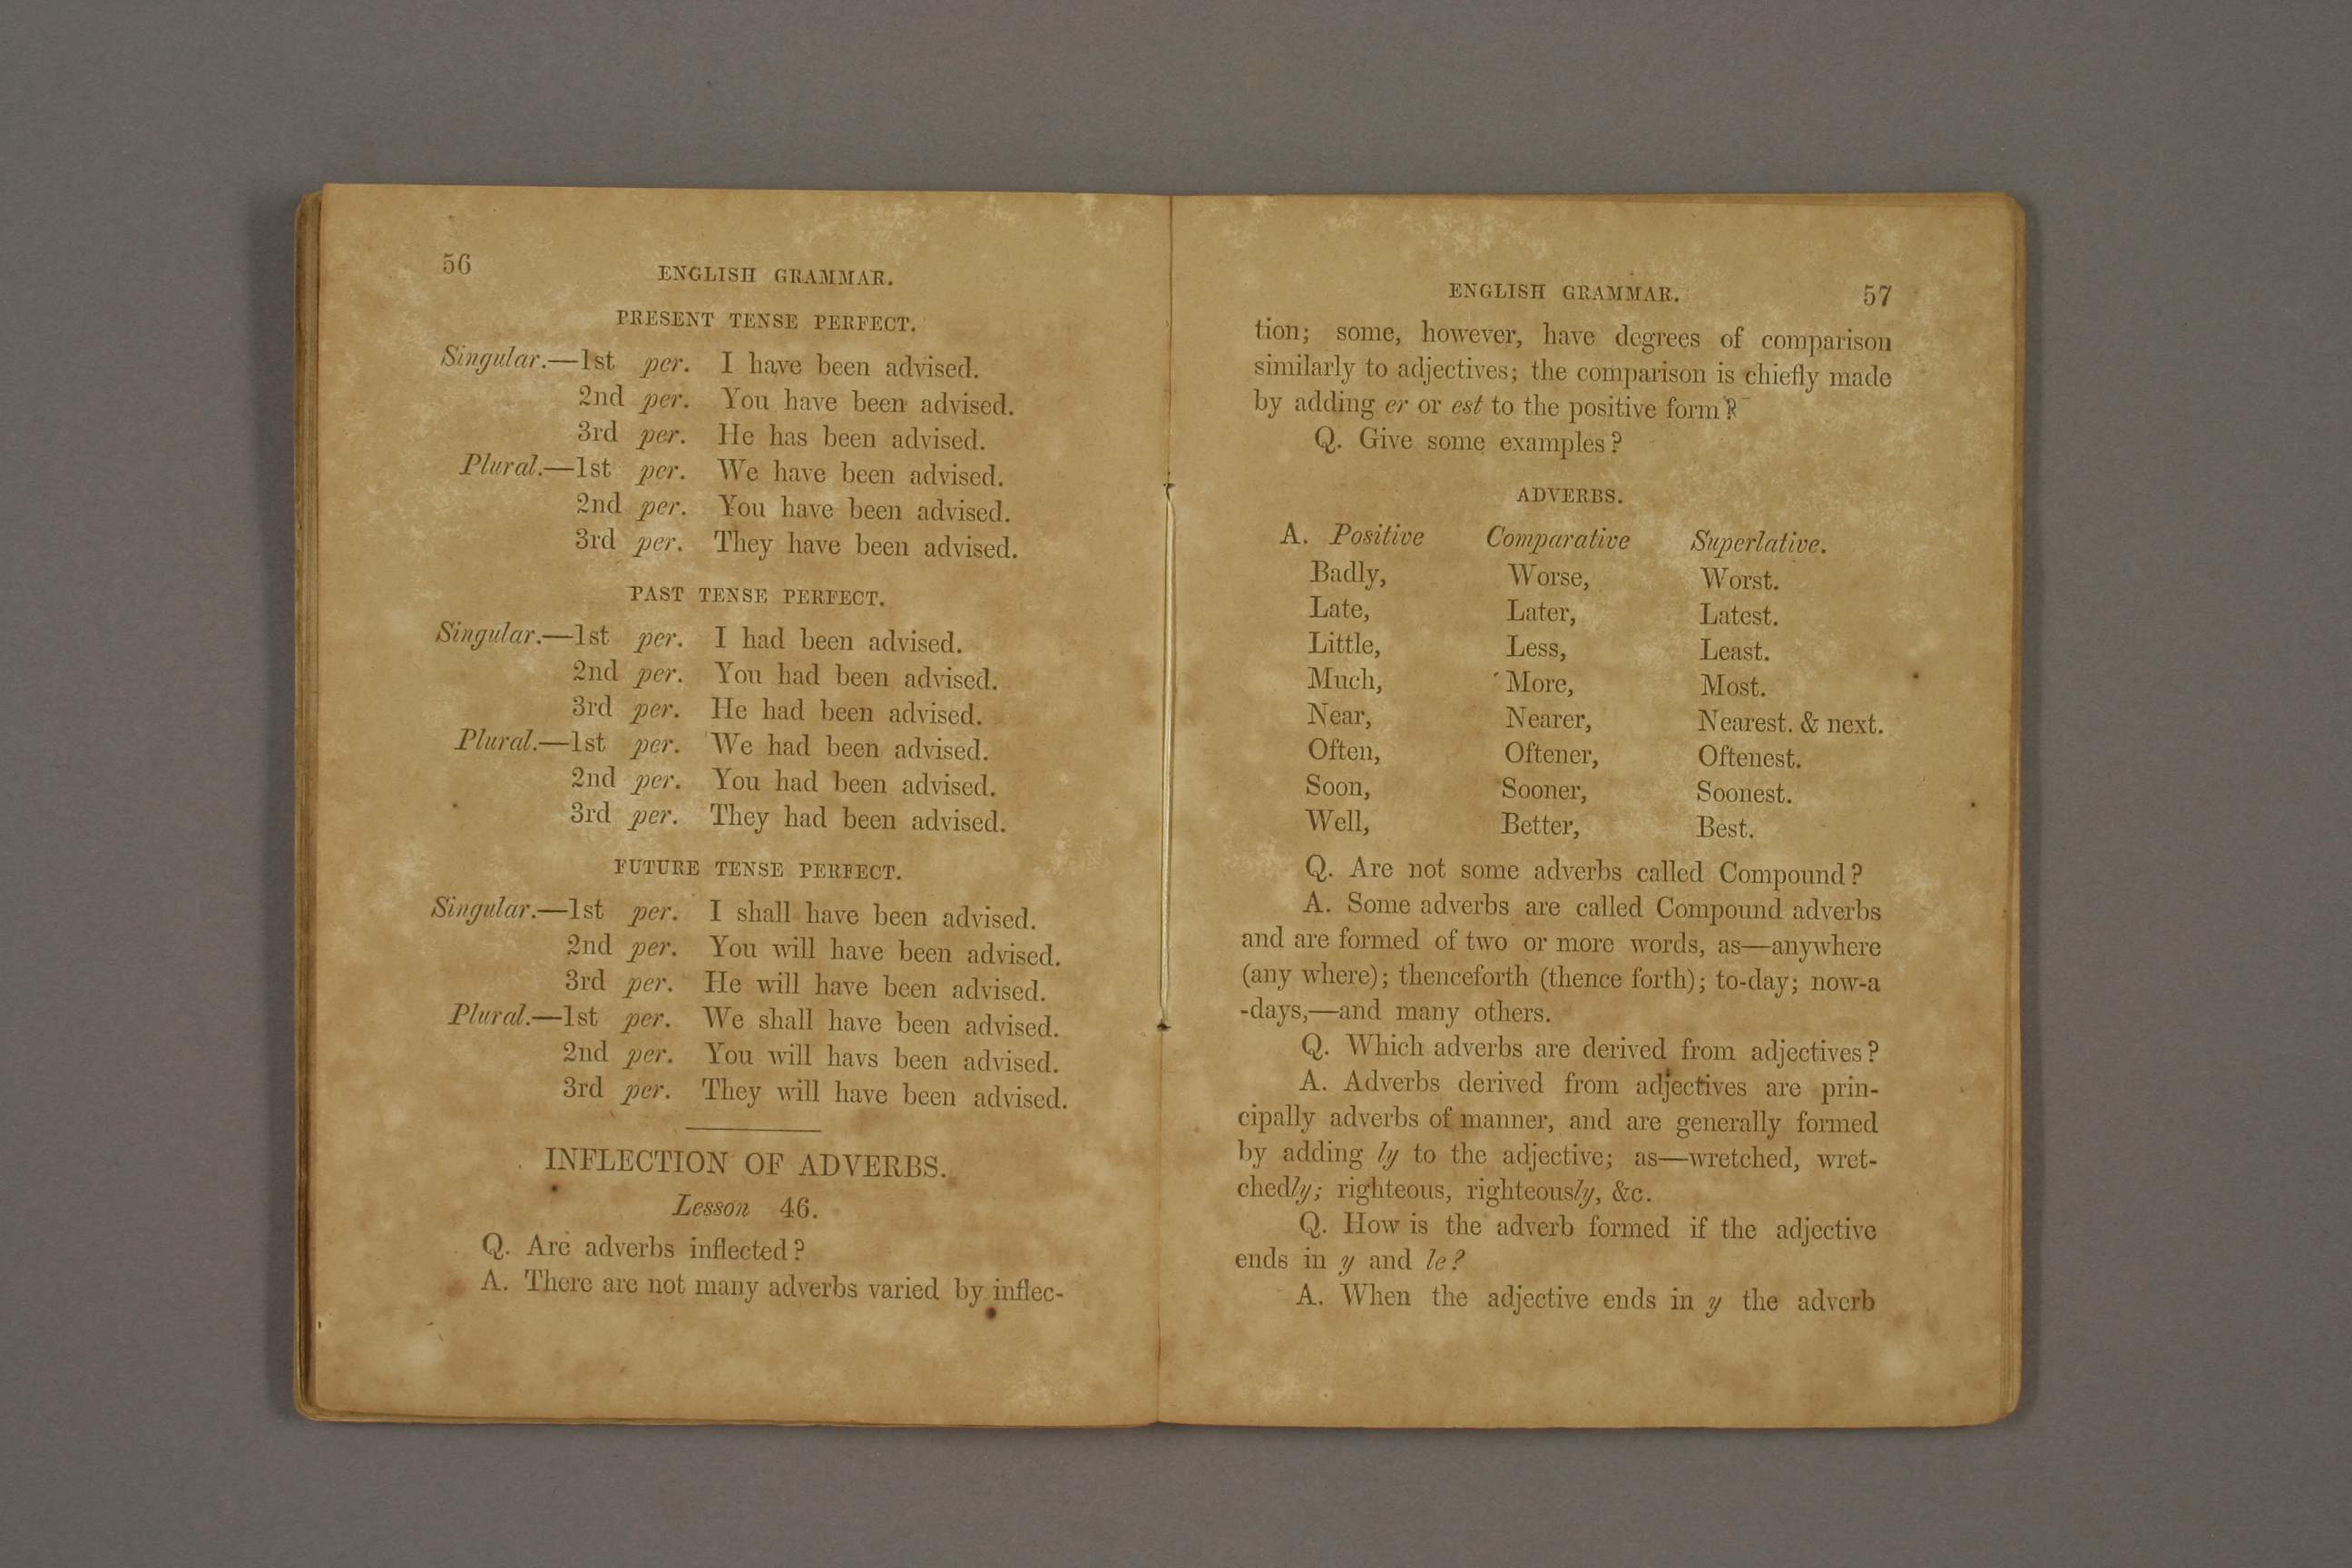 56
ENGLISH GRAMMAR.
PRESENT TENSE PERFECT.
Singular.—1st per. I have been advised.
2nd per. You have been advised.
3rd per. He has been advised.
Plural.—1st per. We have been advised.
2nd per. You have been advised.
3rd per. They have been advised.
PAST TENSE PERFECT.
Singular.—1st per. I had been advised.
2nd per. You had been advised.
3rd per. He had been advised.
Plural.—1st per. We had been advised.
2nd per. You had been advised.
3rd per. They had been advised.
FUTURE TENSE PERFECT.
Singular.—1st per. I shall have been advised.
2nd per. You will have been advised.
3rd per. He will have been advised.
Plural.—1st per. We shall have been advised.
2nd per. You will havs been advised.
3rd per. They will have been advised.
INFLECTION OF ADVERBS.
Lesson 46.
Q. Are adverbs inflected?
A. There are not many adverbs varied by inflec-
ENGLISH GRAMMAR. 57
tion; some, however, have degrees of comparison
similarly to adjectives; the comparison is chiefly made
by adding er or est to the positive form?
Q. Give some examples?
ADVERBS.
A. Positive Comparative Superlative.
Badly, Worse, Worst.
Late, Later, Latest.
Little, Less, Least.
Much, More, Most.
Near, Nearer, Nearest. & next.
Often, Oftener, Oftenest.
Soon, Sooner, Soonest.
Well, Better, Best.
Q. Are not some adverbs called Compound?
A. Some adverbs are called Compound adverbs
and are formed of two or more words, as—anywhere
(any where); thenceforth (thence forth); to-day; now-a
-days,—and many others.
Q. Which adverbs are derived from adjectives?
A. Adverbs derived from adjectives are prin-
cipally adverbs of manner, and are generally formed
by adding ly to the adjective; as—wretched, wret-
chedly; righteous, righteously, &c.
Q. How is the adverb formed if the adjective
ends in y and le?
A. When the adjective ends in y the adverb